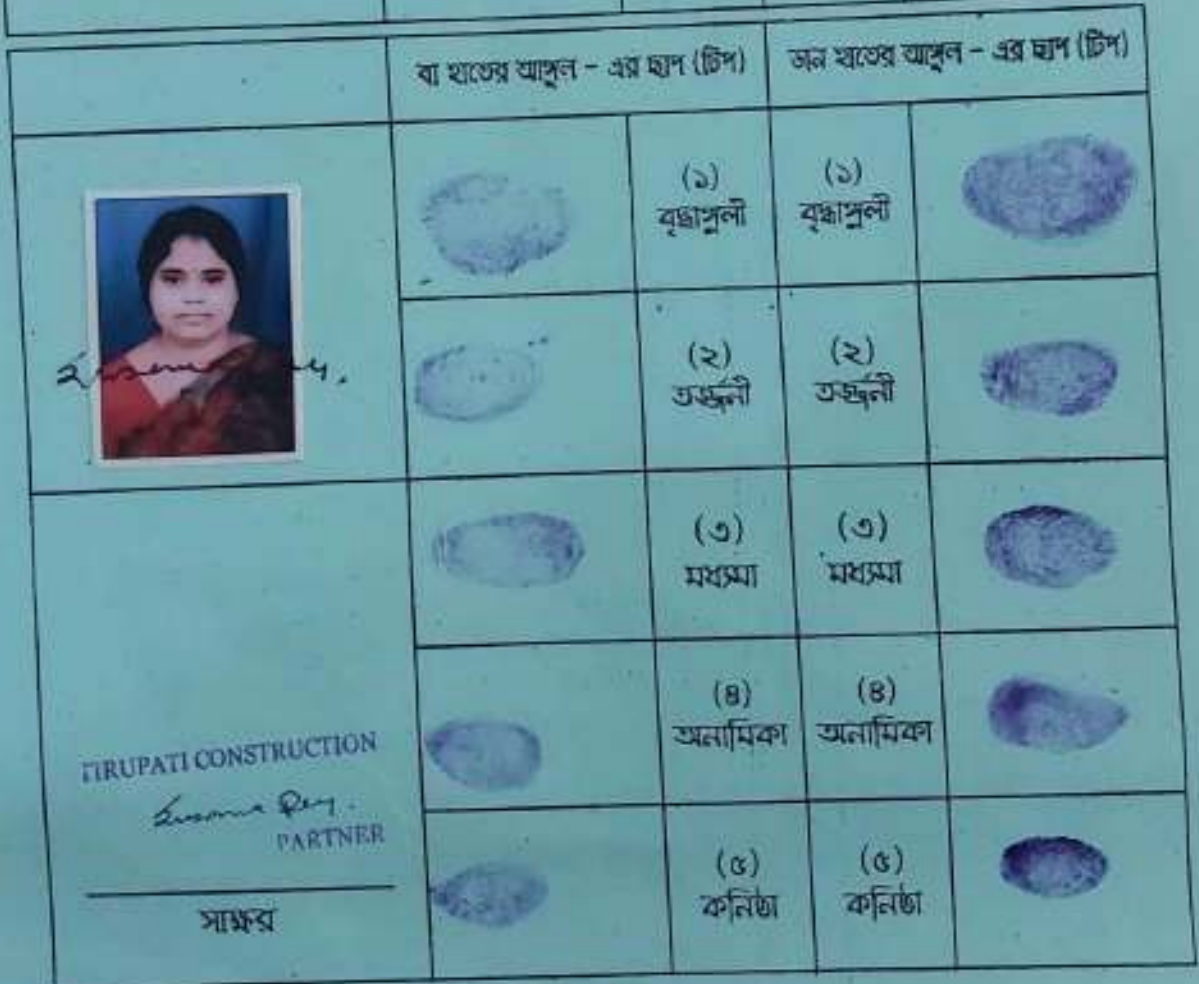 বা হাতের আঙ্গুল - এর ছাপ (টিপ)
ডান হাতের আঙ্গুল - এর ছাপ (টিপ)
(১)
বৃদ্ধাঙ্গুলী
(১)
বৃদ্ধাঙ্গুলী
(২)
তর্জ্জনী
(২)
তর্জ্জনী
(৩)
মধ্যমা
(৩)
মধ্যমা
(৪)
অনামিকা
(৪)
অনামিকা
(৫)
কনিষ্ঠা
(৫)
কনিষ্ঠা
TIRUPATI CONSTRUCTION
PARTNER
সাক্ষর